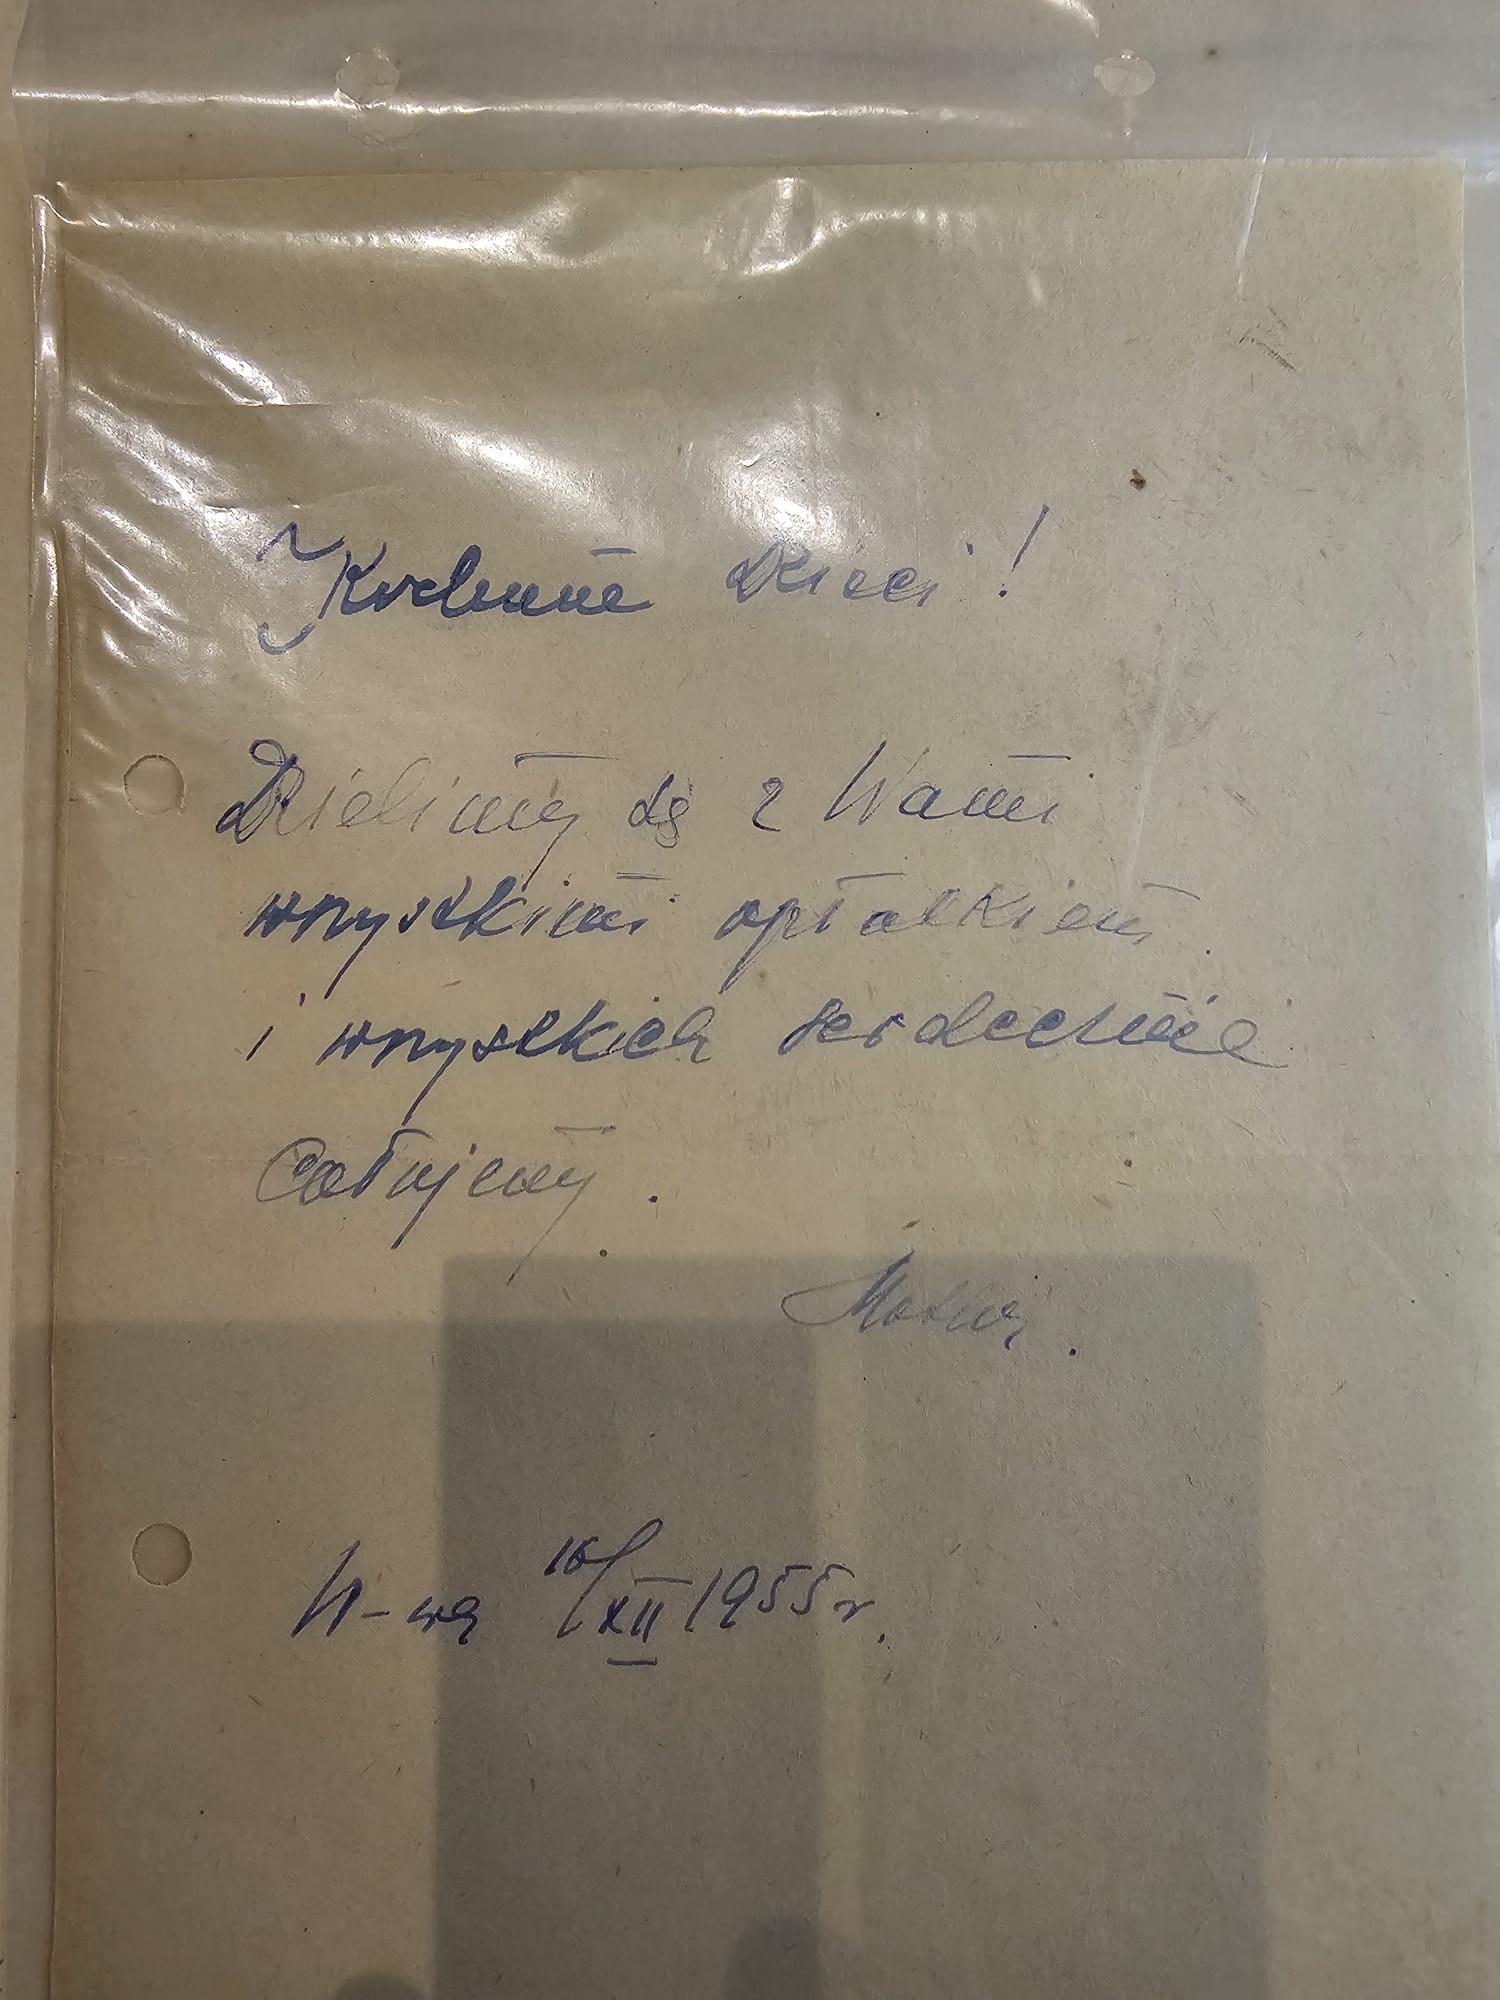 Kochane Dzieci!
Dzielimy się z Wami
wszystkimi opłatkiem
i wszystkich serdecznie
Całujemy.
W-wa 16/XII 1955r.